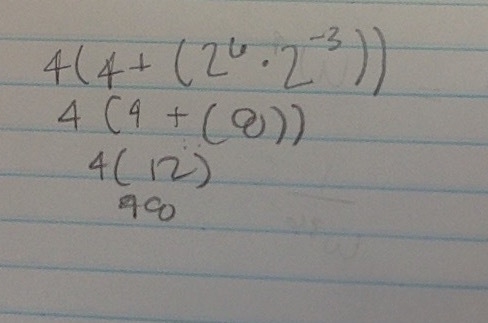 4(4+(2⁶·2⁻³))
4(4+(8))
4(12)
48